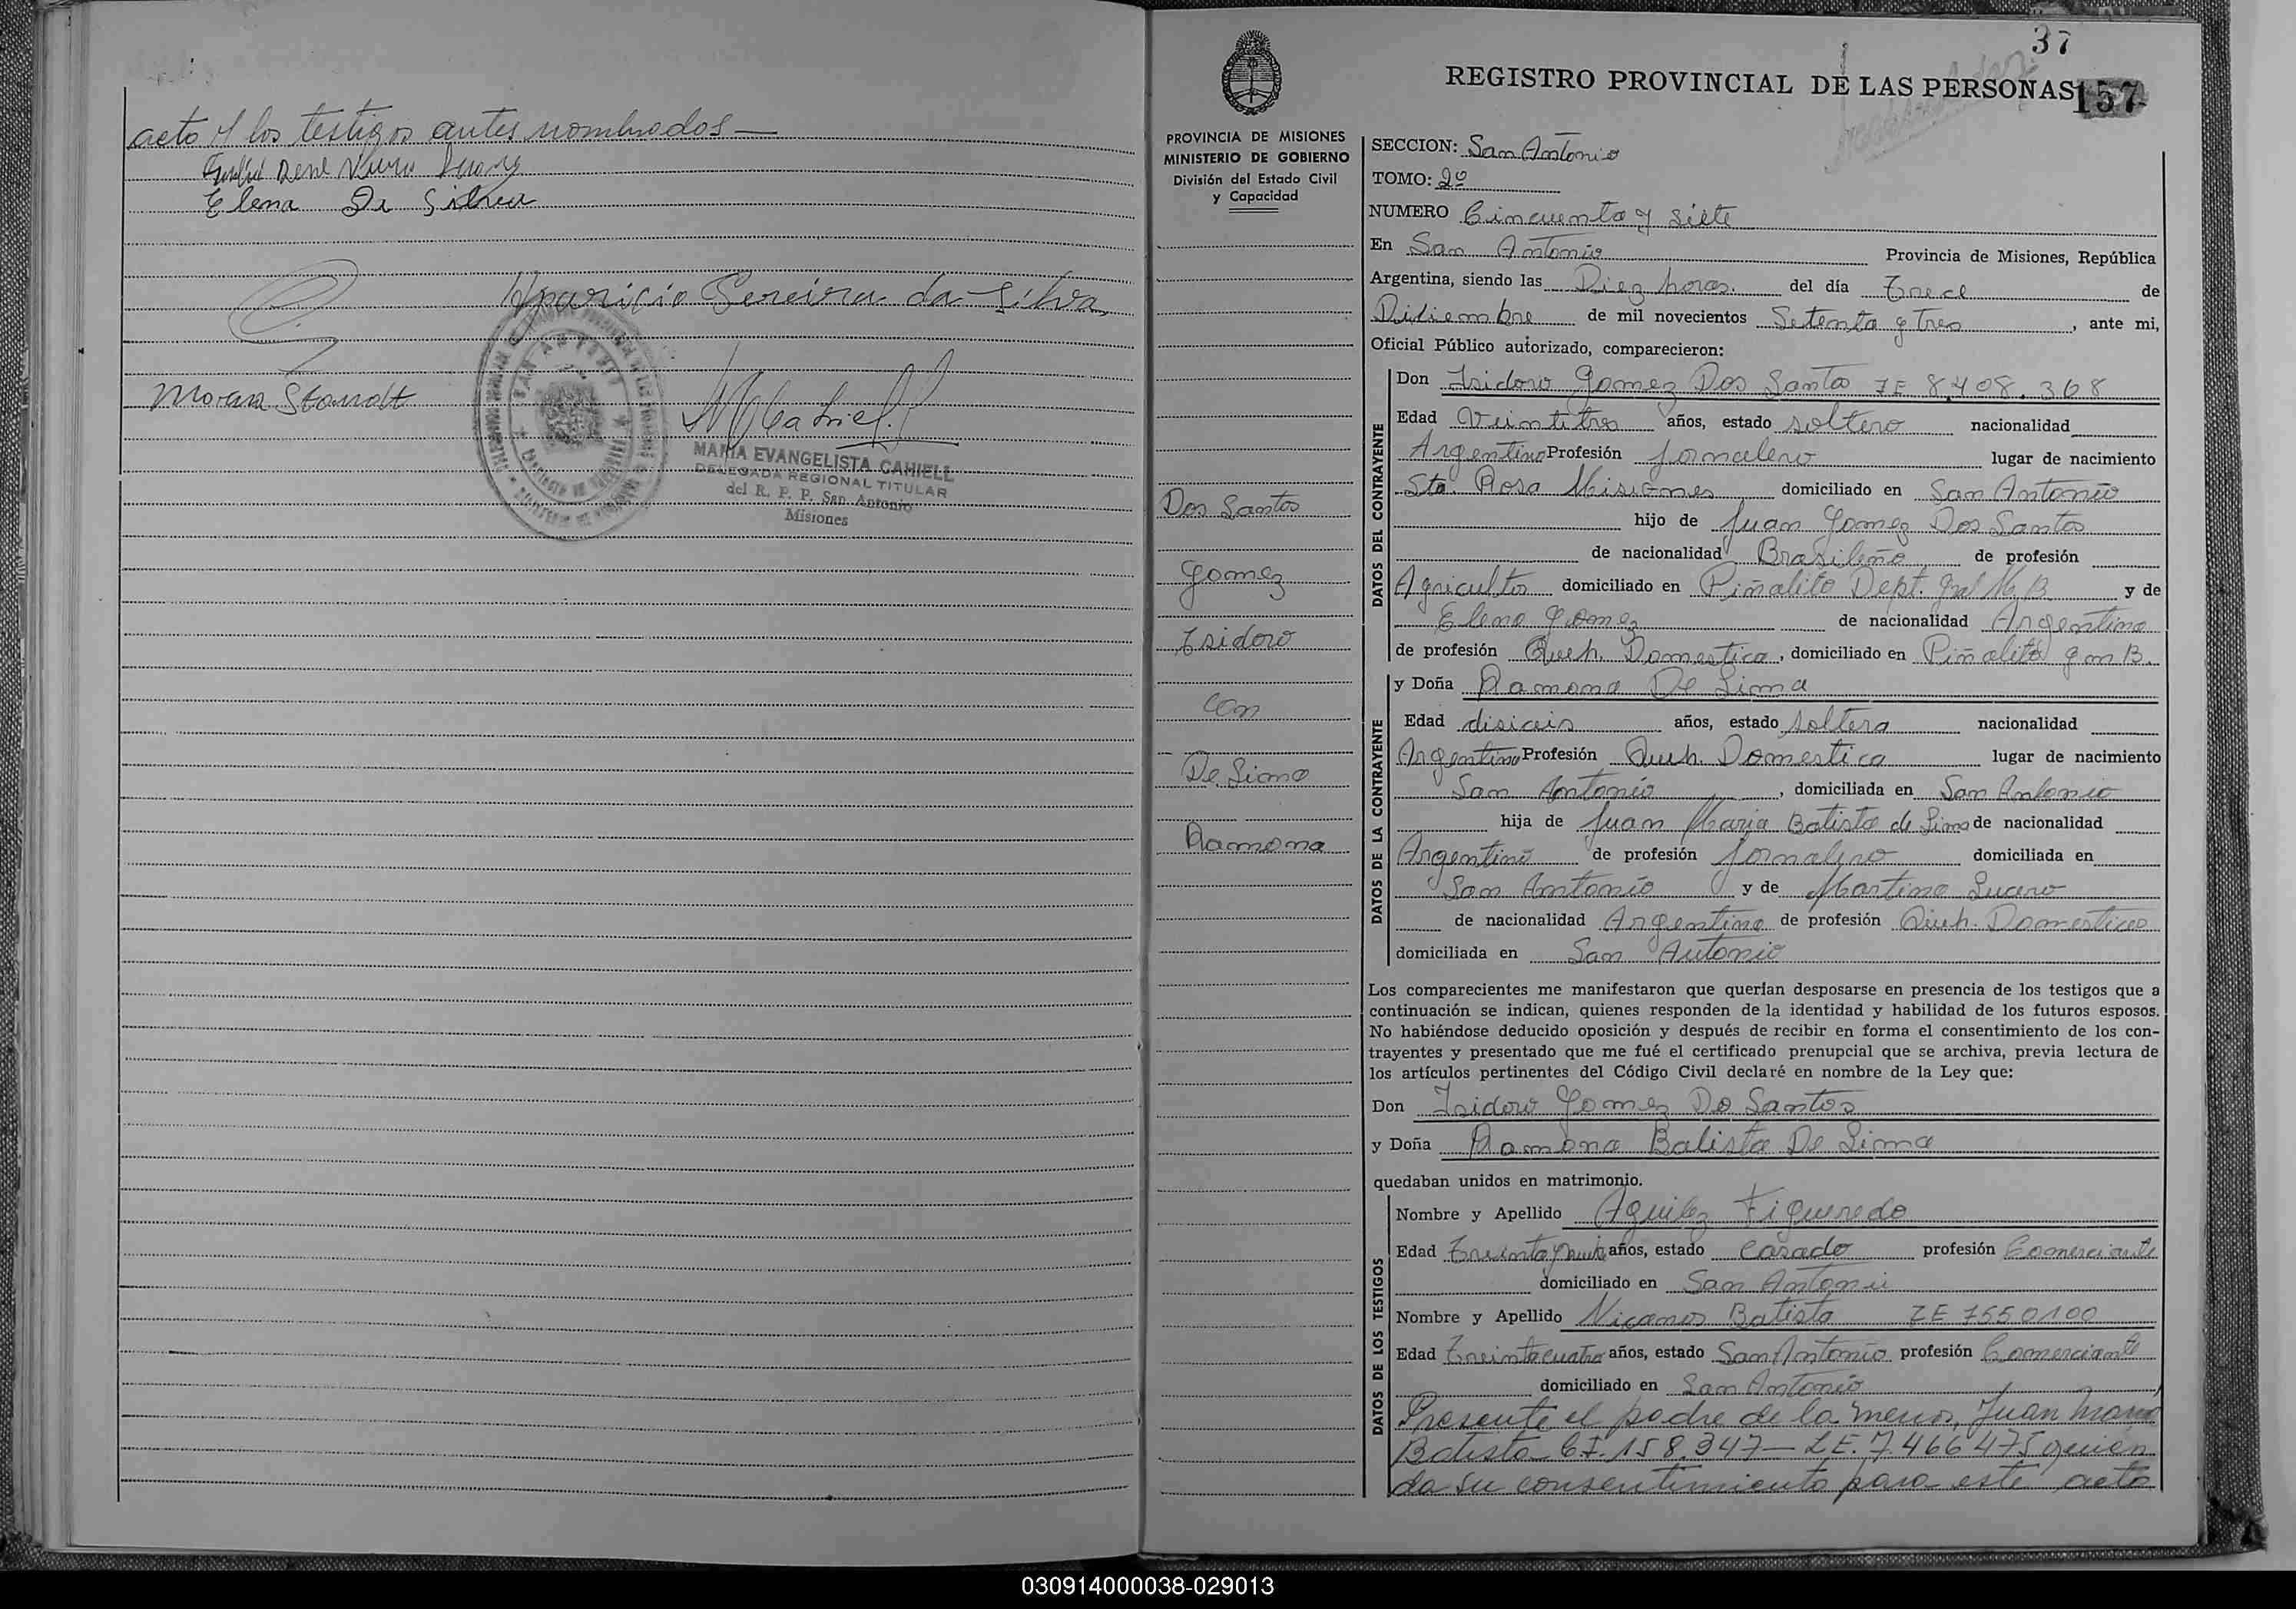 acto y los testigos antes nombrados —
Elena Da Silva
Aparicio Pereira da Silva
MARIA EVANGELISTA CAHIELL
DELEGADA REGIONAL TITULAR
del R. P. P. San Antonio
Misiones
37
REGISTRO PROVINCIAL DE LAS PERSONAS
157
PROVINCIA DE MISIONES
MINISTERIO DE GOBIERNO
División del Estado Civil
y Capacidad
Dos Santos
Gomez
Isidoro
con
De Lima
Ramona
SECCION: San Antonio
TOMO: 2º
NUMERO Cincuenta y siete
En San Antonio Provincia de Misiones, República
Argentina, siendo las Diez horas. del día Trece de
Diciembre de mil novecientos Setenta y Tres, ante mi,
Oficial Público autorizado, comparecieron:
DATOS DEL CONTRAYENTE
Don Isidoro Gomez Dos Santos LE 8.408.368
Edad Veintitres años, estado soltero nacionalidad
Argentino Profesión Jornalero lugar de nacimiento
Sta. Rosa Misiones domiciliado en San Antonio
hijo de Juan Gomez Dos Santos
de nacionalidad Brasileño de profesión
Agricultor domiciliado en Piñalito Dept. Gral M. B. y de
Elena Gomez de nacionalidad Argentina
de profesión Queh. Domestica, domiciliado en Piñalito G m B.
DATOS DE LA CONTRAYENTE
y Doña Ramona De Lima
Edad diciseis años, estado soltera nacionalidad
Argentina Profesión Queh. Domestica lugar de nacimiento
San Antonio, domiciliada en San Antonio
hija de Juan Maria Batista de Lima de nacionalidad
Argentino de profesión Jornalero domiciliada en
San Antonio y de Martina Lucero
de nacionalidad Argentina de profesión Queh. Domesticos
domiciliada en San Antonio
Los comparecientes me manifestaron que querían desposarse en presencia de los testigos que a
continuación se indican, quienes responden de la identidad y habilidad de los futuros esposos.
No habiéndose deducido oposición y después de recibir en forma el consentimiento de los con-
trayentes y presentado que me fué el certificado prenupcial que se archiva, previa lectura de
los artículos pertinentes del Código Civil declaré en nombre de la Ley que:
Don Isidoro Gomez Do Santos
y Doña Ramona Batista De Lima
quedaban unidos en matrimonio.
DATOS DE LOS TESTIGOS
Nombre y Apellido Aguilez Figueredo
Edad Treinta y años, estado casado profesión Comerciante
domiciliado en San Antonio
Nombre y Apellido Nicanor Batista LE 7550100
Edad Treintacuatro años, estado San Antonio profesión Comerciante
domiciliado en San Antonio
Presente el padre de la menor, Juan Maria
Batista C.I. 158.347 — L.E. 7.466.475 quien
da su consentimiento para este acto
030914000038-029013